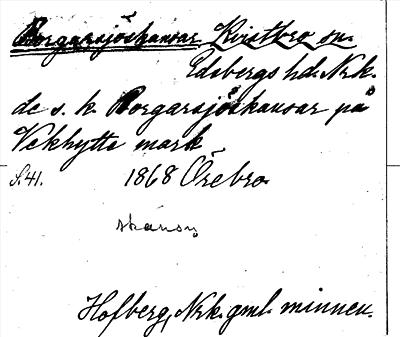 Borgarsjöskansar Kvistbro sn.
Edsbergs hd. Nrk.
de s. k. Borgarsjöskansar på
Vekhytte mark
S.41. 1868 Örebro.
skansy
Hofberg, Nrk. gml. minnen.